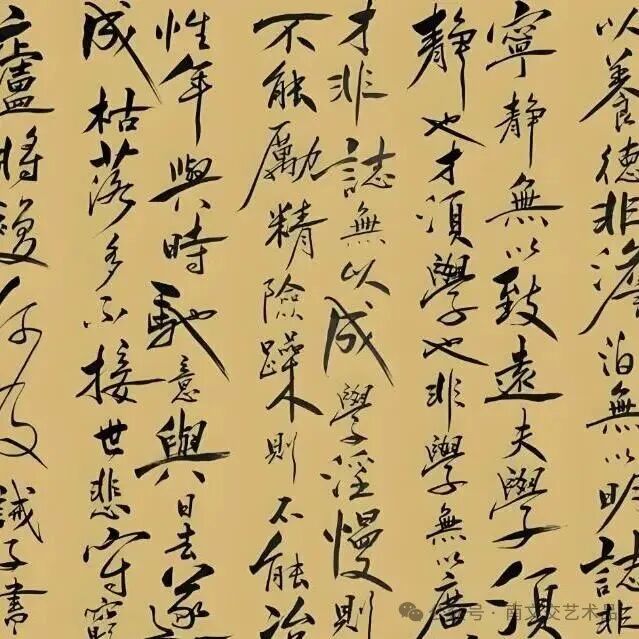 以養德非澹泊無以明誌非
寧靜無以致遠夫學須
靜也才須學也非學無以廣
才非誌無以成學淫慢則
不能勵精險躁則不能冶
性年與時馳意與日去遂
成枯落多不接世悲守窮
廬將復何及誡子書
公众号 · 南文交艺术品